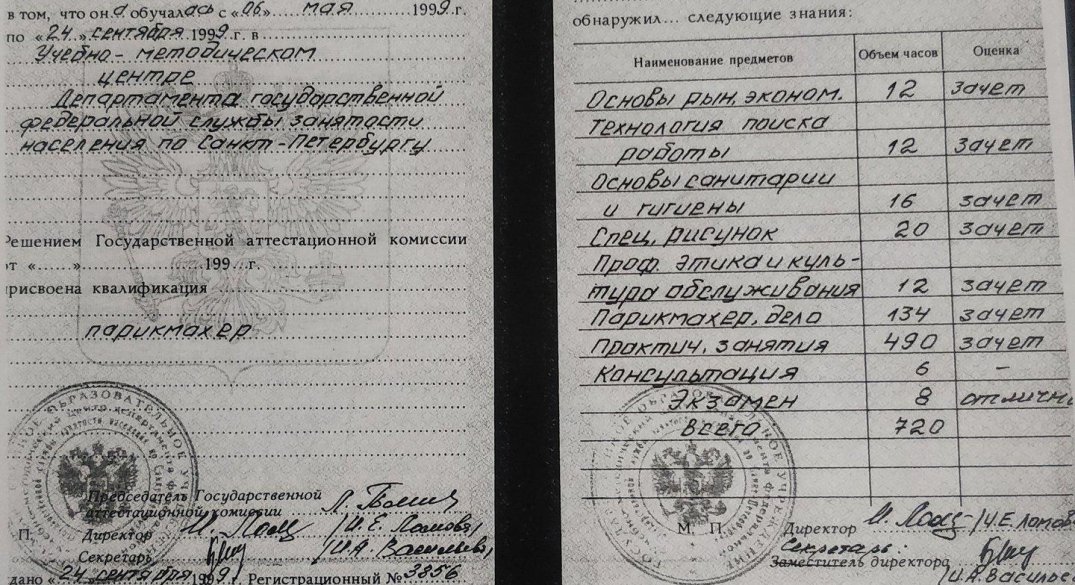 в том, что она обучалась с «06» мая 1999.г.
по «24.» сентября 1999.г. в
Учебно-методическом
центре
Департамента государственной
федеральной службы занятости
населения по Санкт-Петербургу
Решением Государственной аттестационной комиссии
от «......» 199...г.
присвоена квалификация
парикмахер
Председатель Государственной
аттестационной комиссии
П. Директор /И.Е. Ломова/
Секретарь /И.А. Васильева/
дано «24» сентября 1999г. Регистрационный № 3356
обнаружил... следующие знания:
Наименование предметов Объем часов Оценка
Основы рын. эконом. 12 зачет
Технология поиска
работы 12 зачет
Основы санитарии
и гигиены 16 зачет
Спец. рисунок 20 зачет
Проф. этика и куль-
тура обслуживания 12 зачет
Парикмахер. дело 134 зачет
Практич. занятия 490 зачет
Консультация 6 -
Экзамен 8 отлично
Всего 720
М. П. Директор /И.Е. Ломова
Секретарь:
Заместитель директора /И.А. Василье